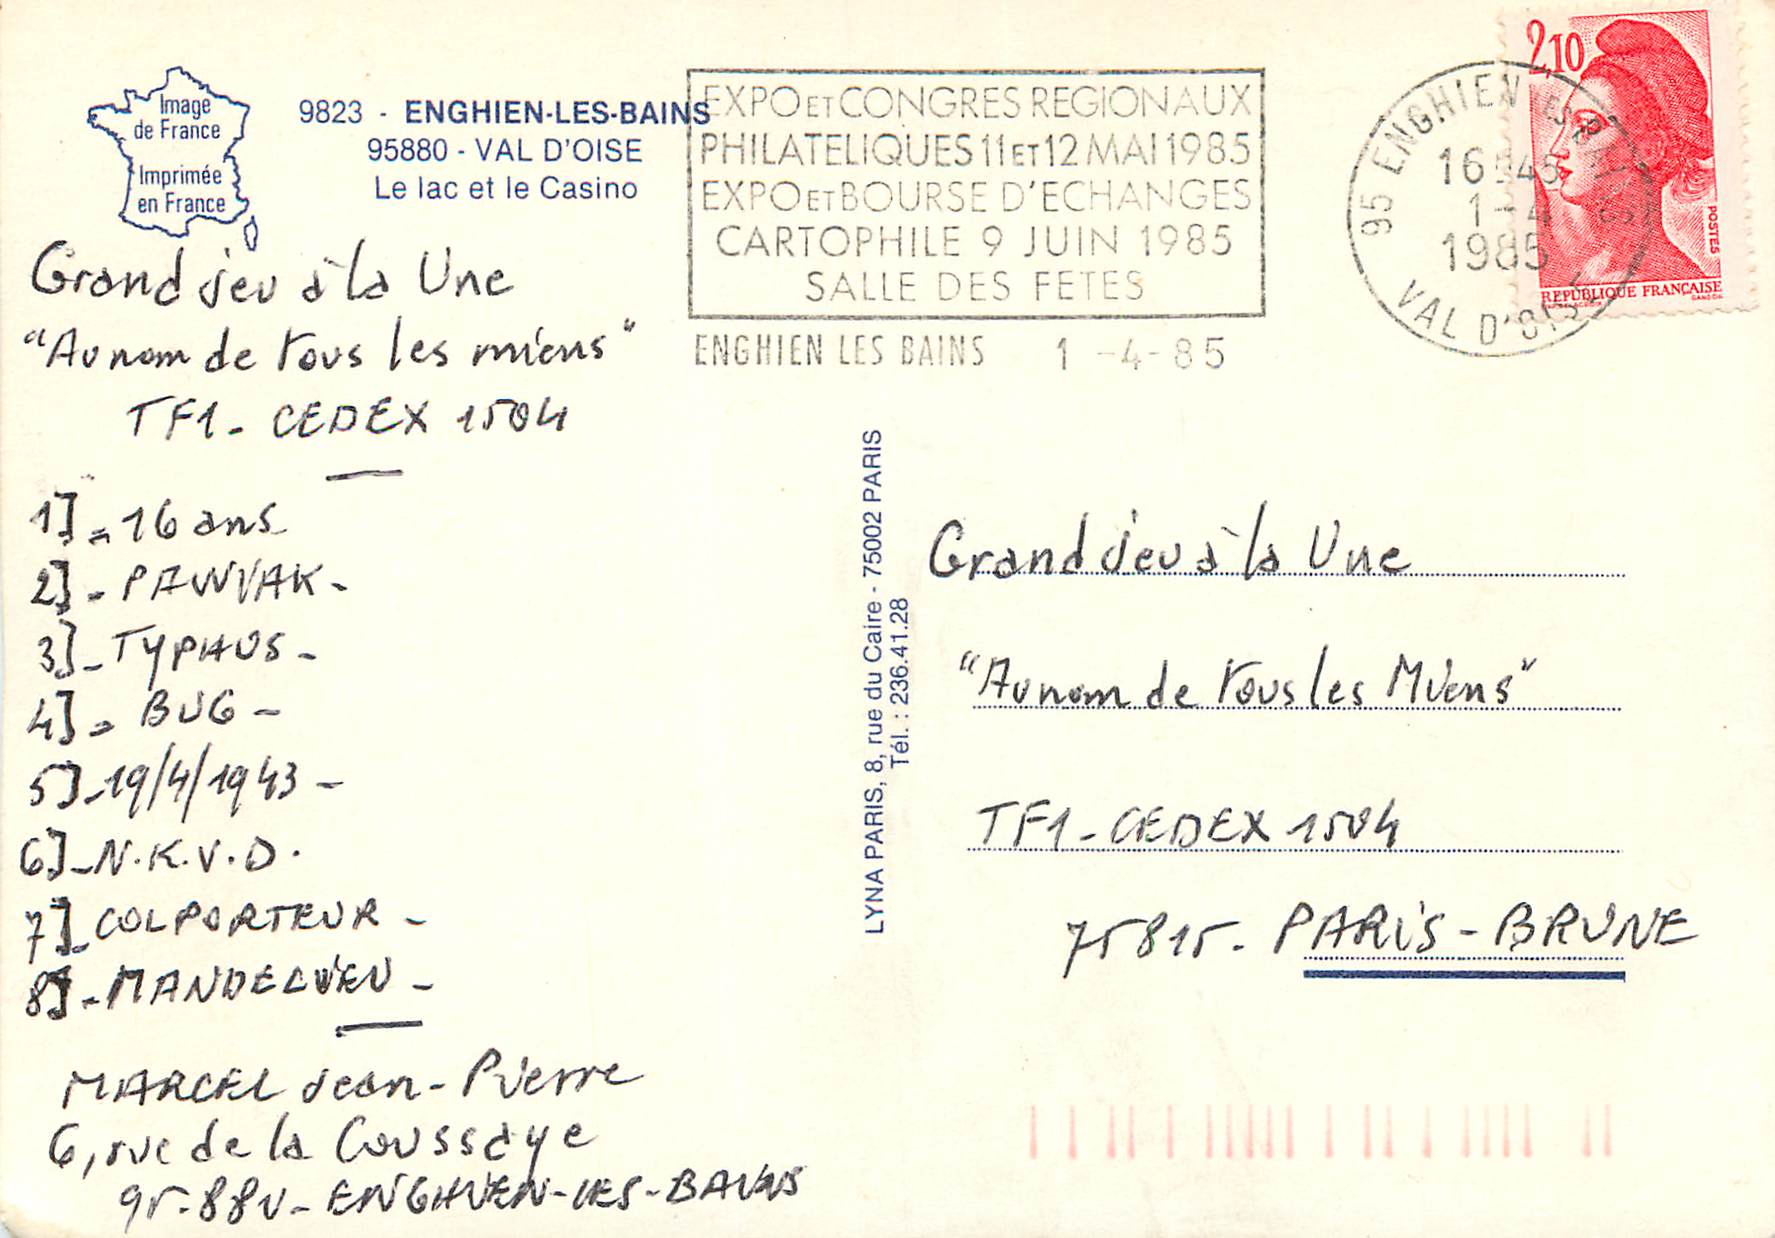 Image
de France
Imprimée
en France
9823 - ENGHIEN-LES-BAINS
95880 - VAL D'OISE
Le lac et le Casino
EXPO ET CONGRES REGIONAUX
PHILATELIQUES 11 ET 12 MAI 1985
EXPO ET BOURSE D'ECHANGES
CARTOPHILE 9 JUIN 1985
SALLE DES FETES
ENGHIEN LES BAINS 1 -4-85
95 ENGHIEN LES BAINS
16H45
1-4
1985
VAL D'OISE
2,10
POSTES
REPUBLIQUE FRANÇAISE
GANDON
Grand jeu à la Une
"Au nom de tous les miens"
TF1 - CEDEX 1504
1] - 16 ans
2] - PAWIAK -
3] - TYPHUS -
4] - BUG -
5] - 19/4/1943 -
6] - N.K.V.D.
7] - COLPORTEUR -
8] - MANDELIEU -
MARCEL Jean-Pierre
6, rue de la Coussaye
95-880 - ENGHIEN-LES-BAINS
LYNA PARIS, 8, rue du Caire - 75002 PARIS
Tél. : 236.41.28
Grand jeu à la Une
"Au nom de tous les Miens"
TF1 - CEDEX 1504
75815 - PARIS - BRUNE